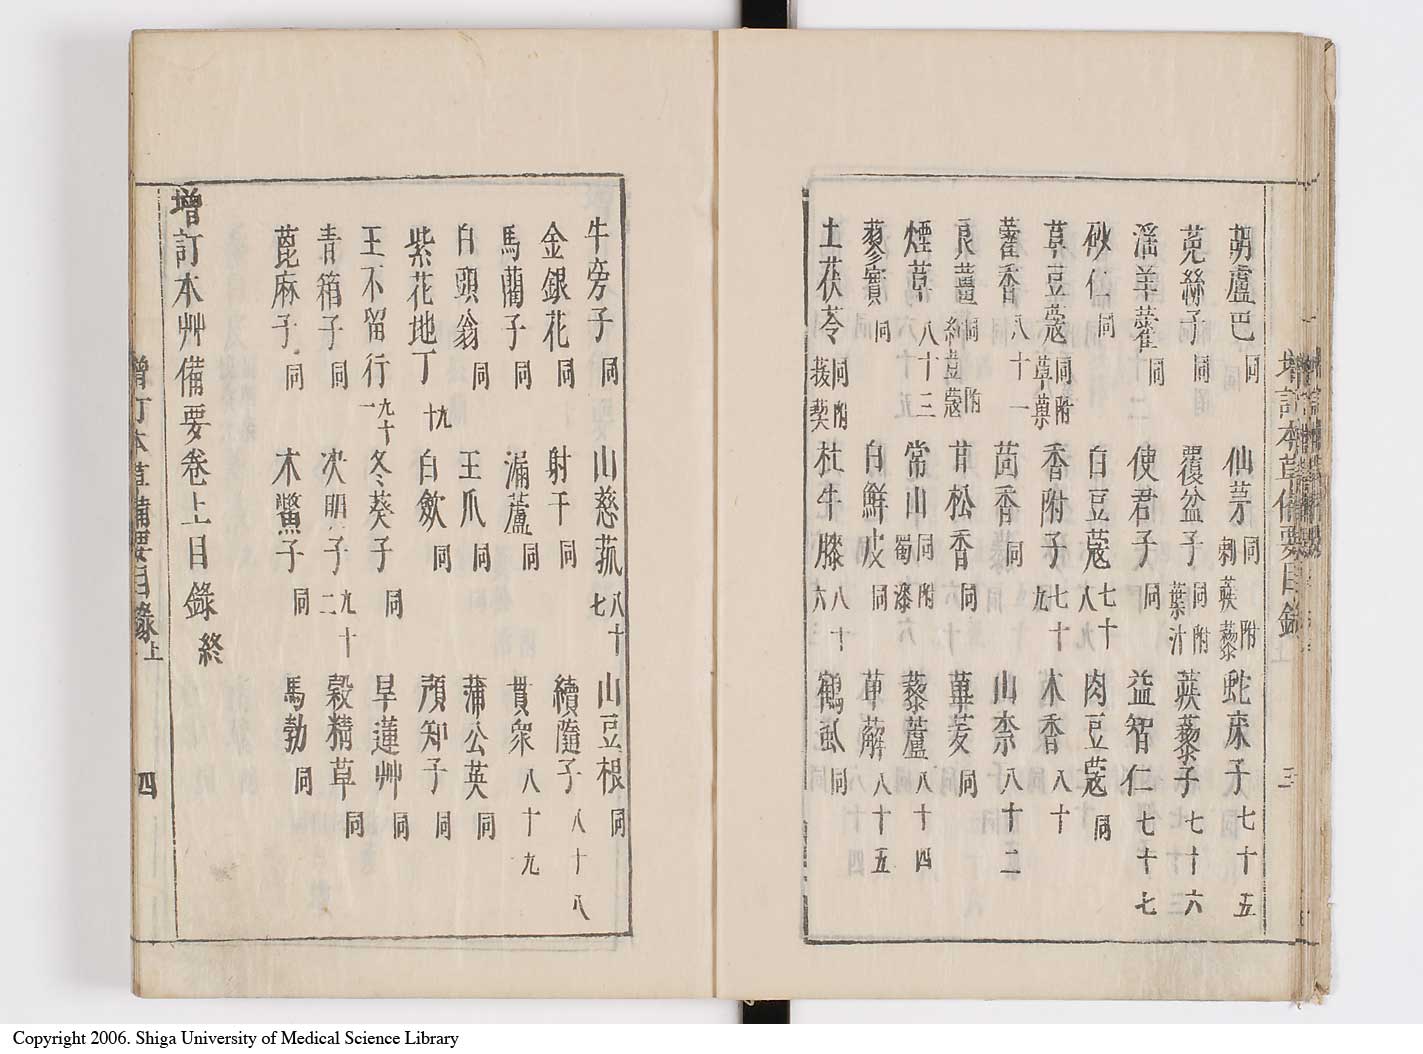 胡盧巴同　仙茅同附刺蒺藜　蛇床子七十五
菟絲子同　覆盆子同附葉汁　蒺藜子七十六
淫羊藿同　使君子同　益智仁七十七
砂仁同　白豆蔻七十八九　肉豆蔻同
草豆蔻同附草菓　香附子七十九　木香八十
藿香八十一　茴香同　山柰八十二
良薑同附紅豆蔻　甘松香同　蓽茇同
煙草八十三　常山同附蜀漆六　藜蘆八十四
蓼實同　白鮮皮同　萆薢八十五
土茯苓同附菝葜　杜牛膝八十六　鶴虱同
增訂本草備要目錄　上　三
牛旁子同　山慈菰八十七　山豆根同
金銀花同　射干同　續隨子八十八
馬藺子同　漏蘆同　貫衆八十九
白頭翁同　王瓜同　蒲公英同
紫花地丁九十　白斂同　預知子同
王不留行九十一　冬葵子同　旱蓮艸同
青箱子同　決明子九十二　穀精草同
蓖麻子同　木鱉子同　馬勃同
增訂本艸備要卷上目錄終
增訂本草備要目錄　上　四
Copyright 2006. Shiga University of Medical Science Library